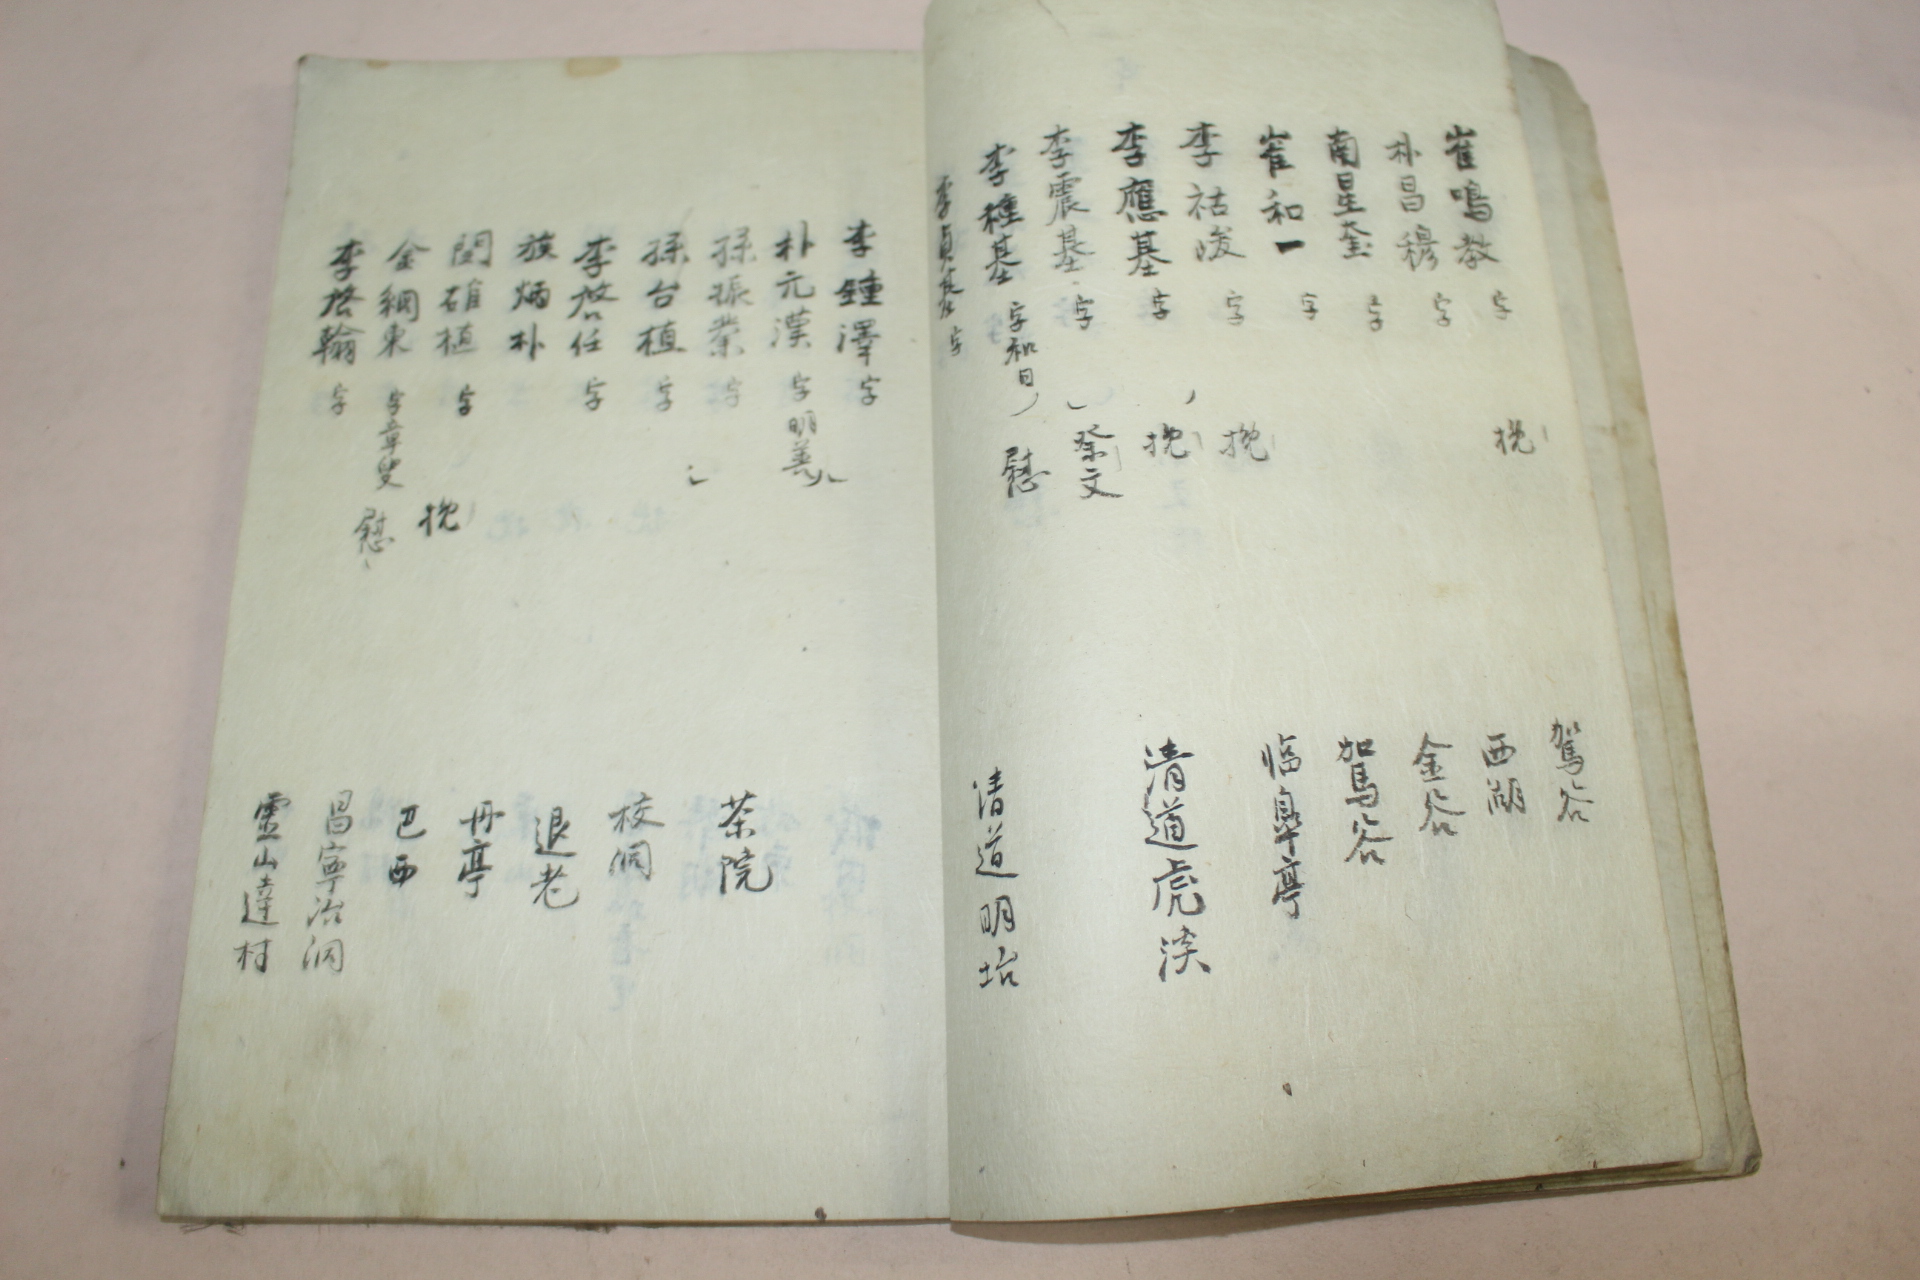 崔鳴教 字 挽 駕谷
朴昌穆 字 西湖
南星奎 字 金谷
崔和一 字 駕谷
李祜浚 字 挽 临皐亭
李應基 字 挽 清道虎淡
李震基 字 祭文
李種基 字和日 慰 清道明坮
李貞 字
李鍾澤 字
朴元漢 字明善 茶院
孫振業 字 校洞
孫台植 字 退老
李啓任 字 丹亭
族炳朴
閔植 字 挽 巴西
金綱東 字章叟 慰 昌寧冶洞
李啓翰 字 靈山達村